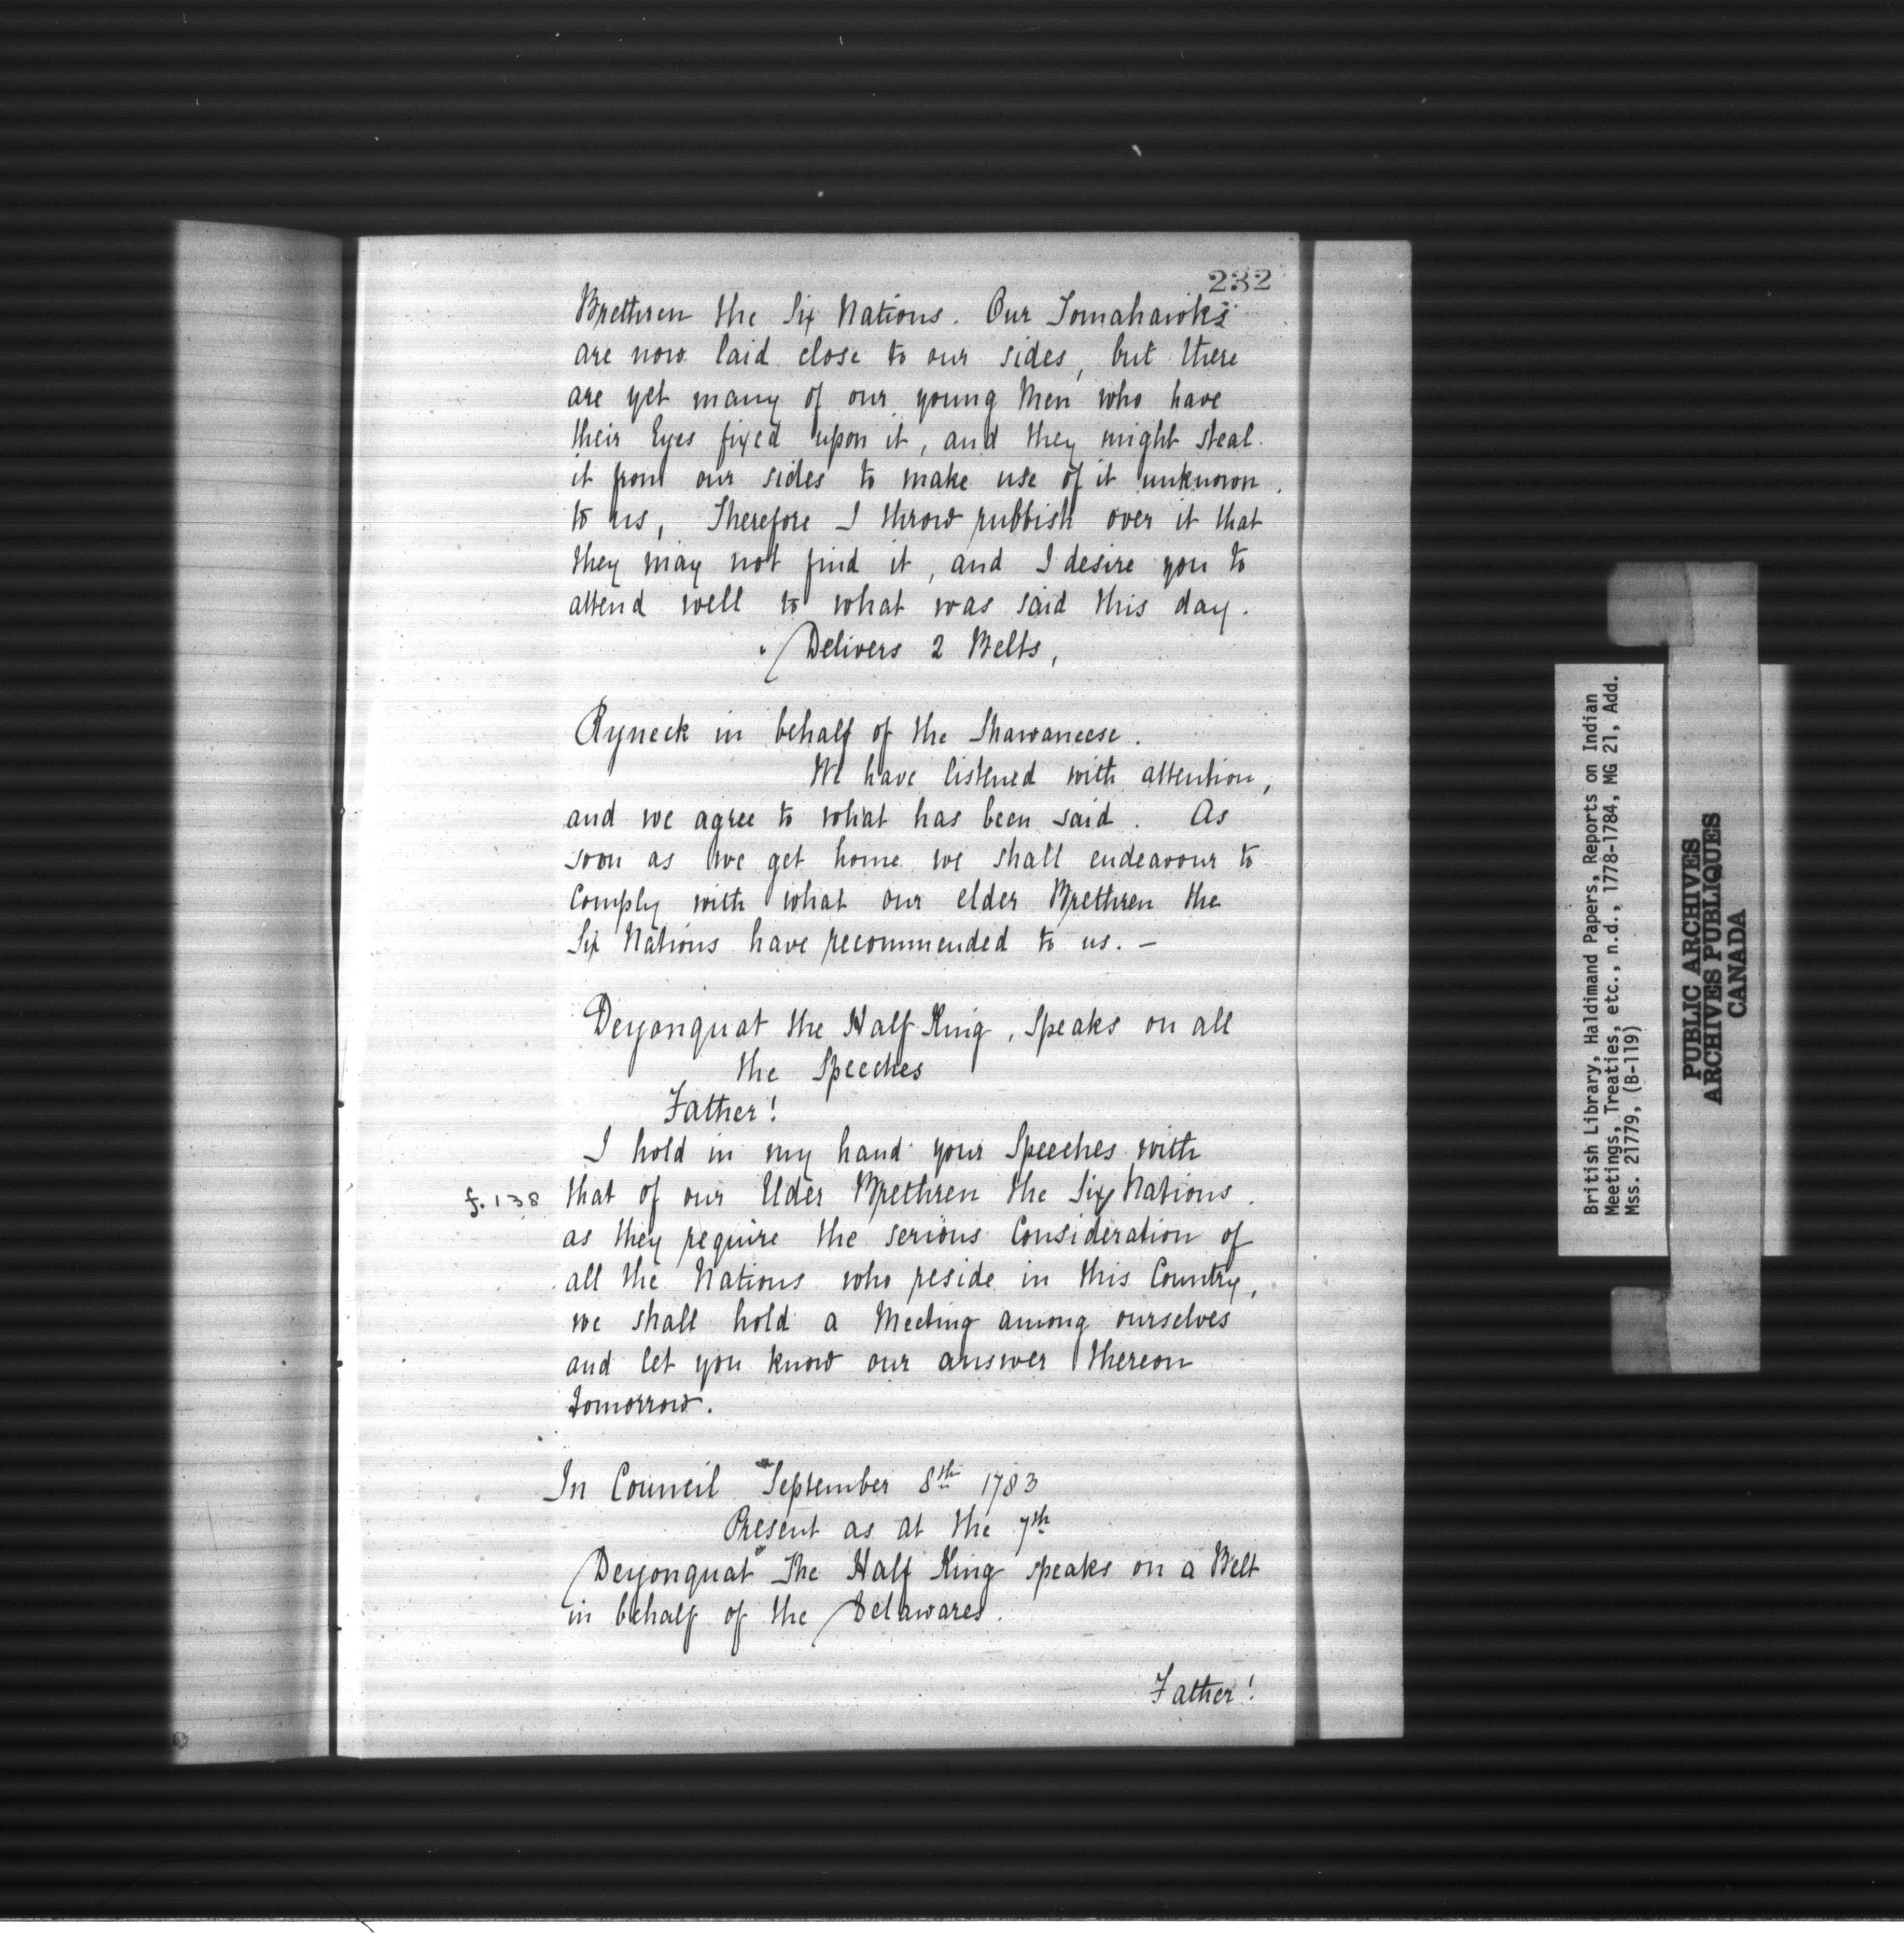 232
Brethren the Six Nations. Our Tomahawks
are now laid close to our sides, but there
are yet many of our young Men who have
their Eyes fixed upon it, and they might steal
it from our sides to make use of it unknown
to us, Therefore I throw rubbish over it that
they may not find it, and I desire you to
attend well to what was said this day.
Delivers 2 Belts,
Ryneck in behalf of the Shawaneese.
We have listened with attention,
and we agree to what has been said. As
soon as we get home we shall endeavour to
Comply with what our elder Brethren the
Six Nations have recommended to us. —
Deyonquat the Half King, Speaks on all
the Speeches
Father!
I hold in my hand your Speeches with
f. 138 that of our Elder Brethren the Six Nations.
as they require the serious Consideration of
all the Nations who reside in this Country,
we shall hold a Meeting among ourselves
and let you know our answer thereon
tomorrow.
In Council September 8th 1783
Present as at the 7th
Deyonquat The Half King speaks on a Belt
in behalf of the Delawares.
Father!
British Library, Haldimand Papers, Reports on Indian
Meetings, Treaties, etc., n.d., 1778-1784, MG 21, Add.
Mss. 21779, (B-119)
PUBLIC ARCHIVES
ARCHIVES PUBLIQUES
CANADA